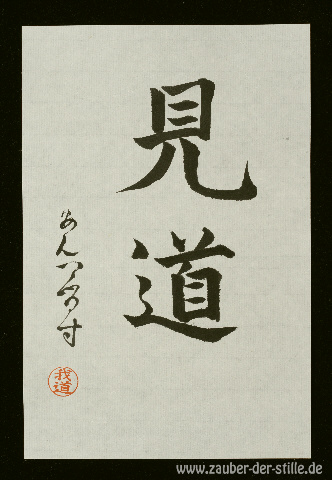 見道
我道
www.zauber-der-stille.de